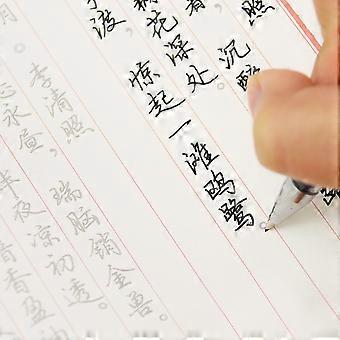 照
沉醉
藕花深处。
渡，惊起一滩鸥鹭。
李清照
永昼，瑞脑销金兽。
半夜凉初透。
香盈袖